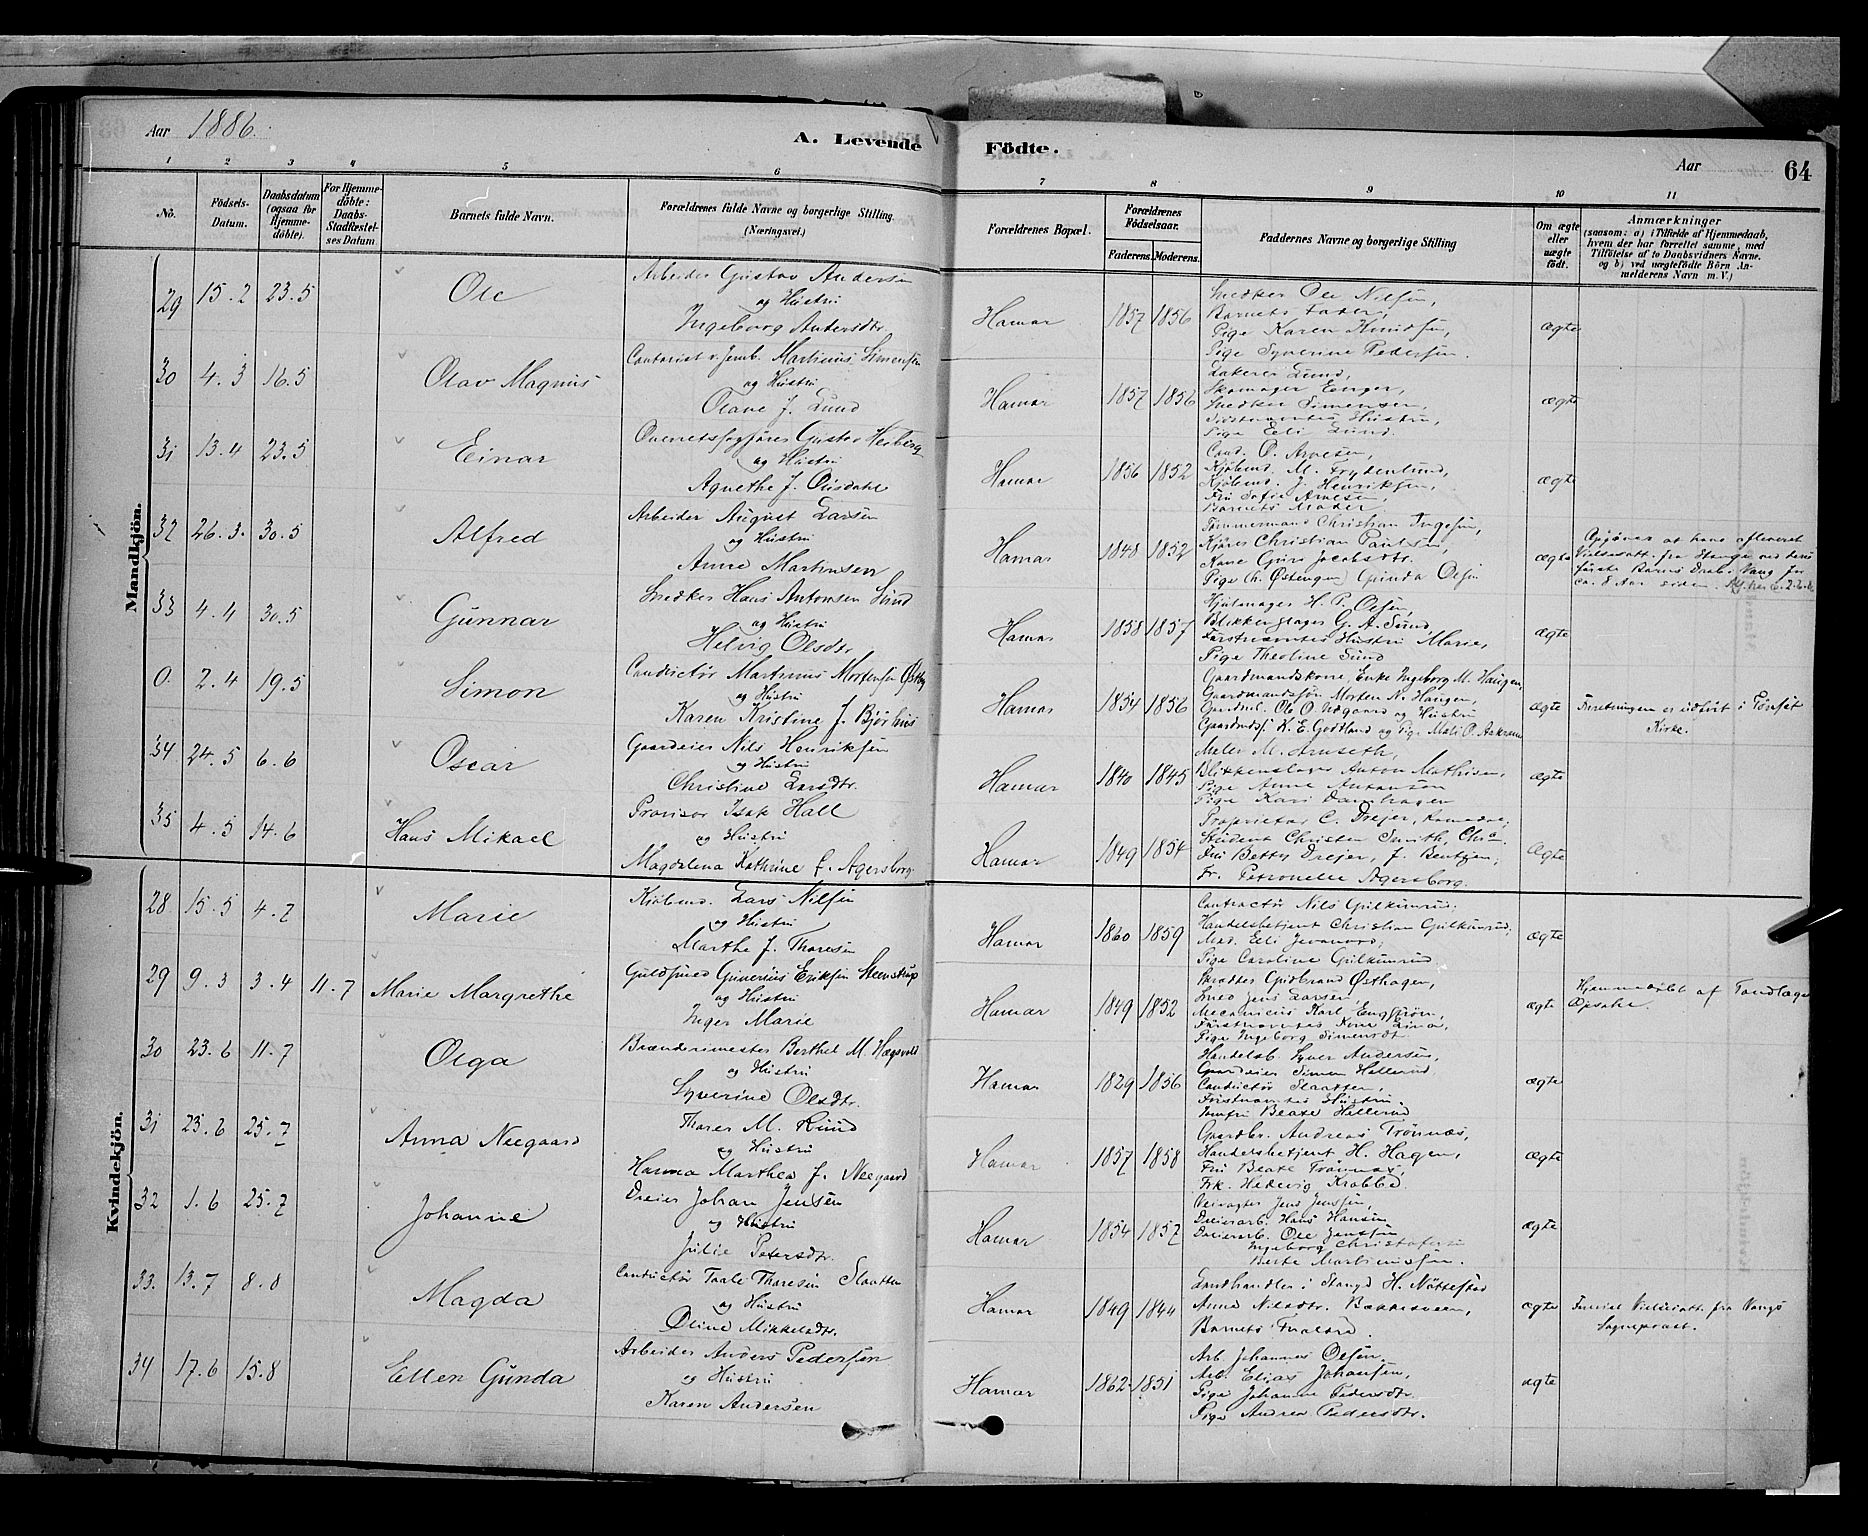 Aar 1886.
A. Levende Födte.
Aar
64
1 2 3 4 5 6 7 8 9 10 11
No.
Födsels-Datum.
Daabsdatum (ogsaa for Hjemme-döbte).
For Hjemme-döbte: Daabs-Stadfæstel-ses Datum
Barnets fulde Navn.
Forældrenes fulde Navne og borgerlige Stilling.
(Næringsvei.)
Forældrenes Bopæl.
Forældrenes Födselsaar.
Faderens. Moderens.
Faddernes Navne og borgerlige Stilling
Om ægte eller uægte födt.
Anmærkninger
(saasom: a) i Tilfælde af Hjemmedaab,
hvem der har forrettet samme, med
Tilföielse af to Daabsvidners Navne.
og b) ved uægtefödte Börn An-
melderens Navn m. V.)
Mandkjön.
29 15.2 23.5 Ole
Arbeider Gustav Andersen
og Hustru
Ingeborg Andersdtr.
Hamar 1857 1856
Snedker Ole Nilsen,
Barnets Fader,
Pige Karen Knudsen,
Pige Syverine Pedersen.
ægte
30 4.3 16.5 Olav Magnus
Contorist v. Jernb. Martinus Simensen
og Hustru
Olane f. Lund
Hamar 1857 1856
Lund,
Skomager Enger,
Snedker Simensen,
Sidstnævntes Hustru,
Pige Eli Lund.
ægte
31 13.4 23.5 Einar
Overretssagförer Gustav Heiberg
og Hustru
Agnethe f. Onsdahl
Hamar 1856 1852
Cand. O. Arnesen,
Kjöbmd. M. Frydenlund,
Kjöbmd. J. Henriksen,
Fru Sofie Arnesen,
Barnets Moder
ægte
32 26.3. 30.5 Alfred
Arbeider August Larsen
og Hustru
Anne Martinsen
Hamar 1848 1852
Tömmermand Christian Ingesen,
Kjörer Christian Paulsen,
Kone Guri Jacobsdtr.
Pige (h. Østengen) Gunda Olsen
ægte
Opgiver at have afleveret
Vielsesatt. fra Stange ved deres
förste Barns Daab i Vang for
ca. 8 Aar siden.
33 4.4 30.5 Gunnar
Snedker Hans Antonsen Lund
og Hustru
Helvig Olsdtr.
Hamar 1858 1857
Hjulmager H. P. Olsen,
Blikkenslager G. A. Lund,
Förstnævntes Hustru Marie,
Pige Theoline Lund
ægte
0. 2.4 19.5 Simon
Conductör Martinus Mortensen Østby
og Hustru
Karen Kristine f. Bjørhus
Hamar 1854 1856
Gaardmandskone, Enke Ingeborg M. Haugen,
Gaardmandssön Morten N. Haugen,
Gaardmd. Ole O. Udgaard og Hustru
Gaardmds. K. E. Godtland og Pige Mali O.
ægte
Forretningen er udfört i Tönset
Kirke.
34 24.5 6.6 Oscar
Gaardeier Nils Henriksen
og Hustru
Christine Larsdtr.
Hamar 1840 1845
Maler M. Aruseth,
Blikkenslager Anton Mathisen,
Pige Anne Antonsen
Pige Kari
ægte
35 4.5 14.6 Hans Mikael
Provisor Isak Hall
og Hustru
Magdalena Kathrine f. Agersborg.
Hamar 1849 1854
Proprietær C. Drejer,
Student Christen Smith, Chra.
Fru Betty Drejer, f. Bentzen,
Fr. Petronelle Agersborg.
Ægte
Kvindekjön.
28 15.5 4.7 Marie
Kjöbmd. Lars Nilsen
og Hustru
Marthe f. Thoresen
Hamar 1860 1859
Contractör Nils Gulkunrud,
Handelsbetjent Christian Gulkunrud,
Mad. Eli Jevanord,
Pige Caroline Gulkunrud
ægte
29 9.3 3.4 11.7 Marie Margrethe
Guldsmed Gunerius Eriksen Steenstrup
og Hustru
Inger Marie
Hamar 1849 1852
Skrædder Gudbrand Østhagen,
Smed Jens Larsen
Mecanicus Karl Engström,
Förstnævntes Kone Lina,
Pige Ingeborg Simensdt.
ægte
Hjemmedöbt af Tandlæge
Opsahl.
30 23.6 11.7 Olga
Brænderimester Berthel M. Hagsvold
og Hustru
Syverine Olsdtr.
Hamar 1829 1856
Handelsb. Syver Andersen,
Gaardeier Simen Hellerud,
Conductör Slaatten,
Förstnævntes Hustru,
Jomfru Beate Hellerud
ægte
31 23.6 25.7 Anna Neegaard
Thorer M. Ruud
og Hustru
Hanna Marthea f. Neegaard
Hamar 1857 1858
Gaardbr. Andreas Trönnæs,
Handelsbetjent H. Hagen,
Fru Beate Trönnæs,
Frk. Hedevig Krabbe
ægte
32 1.6 25.7 Johanne
Dreier Johan Jensen
og Hustru
Julie Petersdtr.
Hamar 1854 1857
Veivogter Jens Jensen,
Dreierarb. Hans Hansen
Dreierarb. Ole Jensen
Ingeborg Christofersen
Berte Martinusen.
ægte
33. 13.7 8.8 Magda
Conductör Taale Thoresen Slaatten
og Hustru
Oline Mikkelsdtr.
Hamar 1849 1844
Landhandler i Stange H. Nöttestad
Anne Nilsdtr. Bækkesveen,
Barnets Forældre.
ægte
Vielsesatt. fra Vangs
Sogneprest.
34 17.6 15.8 Ellen Gunda
Arbeider Anders Pedersen
og Hustru
Karen Andersen
Hamar 1862 1851
Arb. Johannes Olsen
Arb. Elias Johansen,
Pige Johanne Pedersdtr.
Pige Andrea Pedersdtr.
ægte